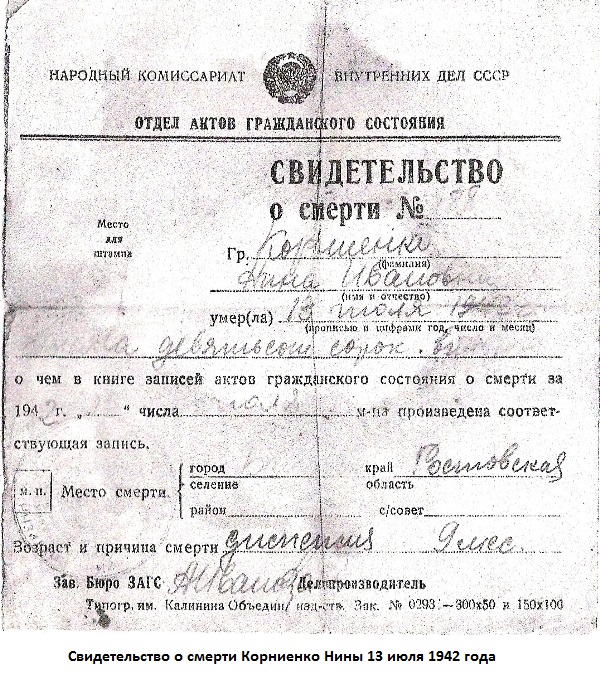 НАРОДНЫЙ КОМИССАРИАТ ВНУТРЕННИХ ДЕЛ СССР
ОТДЕЛ АКТОВ ГРАЖДАНСКОГО СОСТОЯНИЯ
СВИДЕТЕЛЬСТВО
о смерти №
Место
для
штампа
Гр. Корниенко
(фамилия)
Нина Ивановна
(имя и отчество)
умер(ла) 13 июля 1942
(прописью и цифрами год, число и месяц)
девятьсот сорок
о чем в книге записей актов гражданского состояния о смерти за
1942 г. „ “ числа июля м-ца произведена соответ-
ствующая запись.
м. п.
Место смерти
город край Ростовская
селение область
район с/совет
Возраст и причина смерти диспепсия 9 мес.
Зав. Бюро ЗАГС Делопроизводитель
Типогр. им. Калинина Объедин. изд-ств. Зак. № 0293.—300х50 и 150х100
Свидетельство о смерти Корниенко Нины 13 июля 1942 года